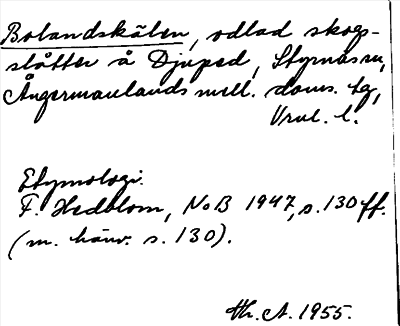 Bolandskälen, odlad skogs-
slåtter å Djuped, Styrnäs sn,
Ångermanlands mell. doms. tg,
Vrnl. l.
Etymologi.
F. Hedblom, NoB 1947, s. 130 ff.
(m. hänv. s. 130).
Hr. A. 1955.